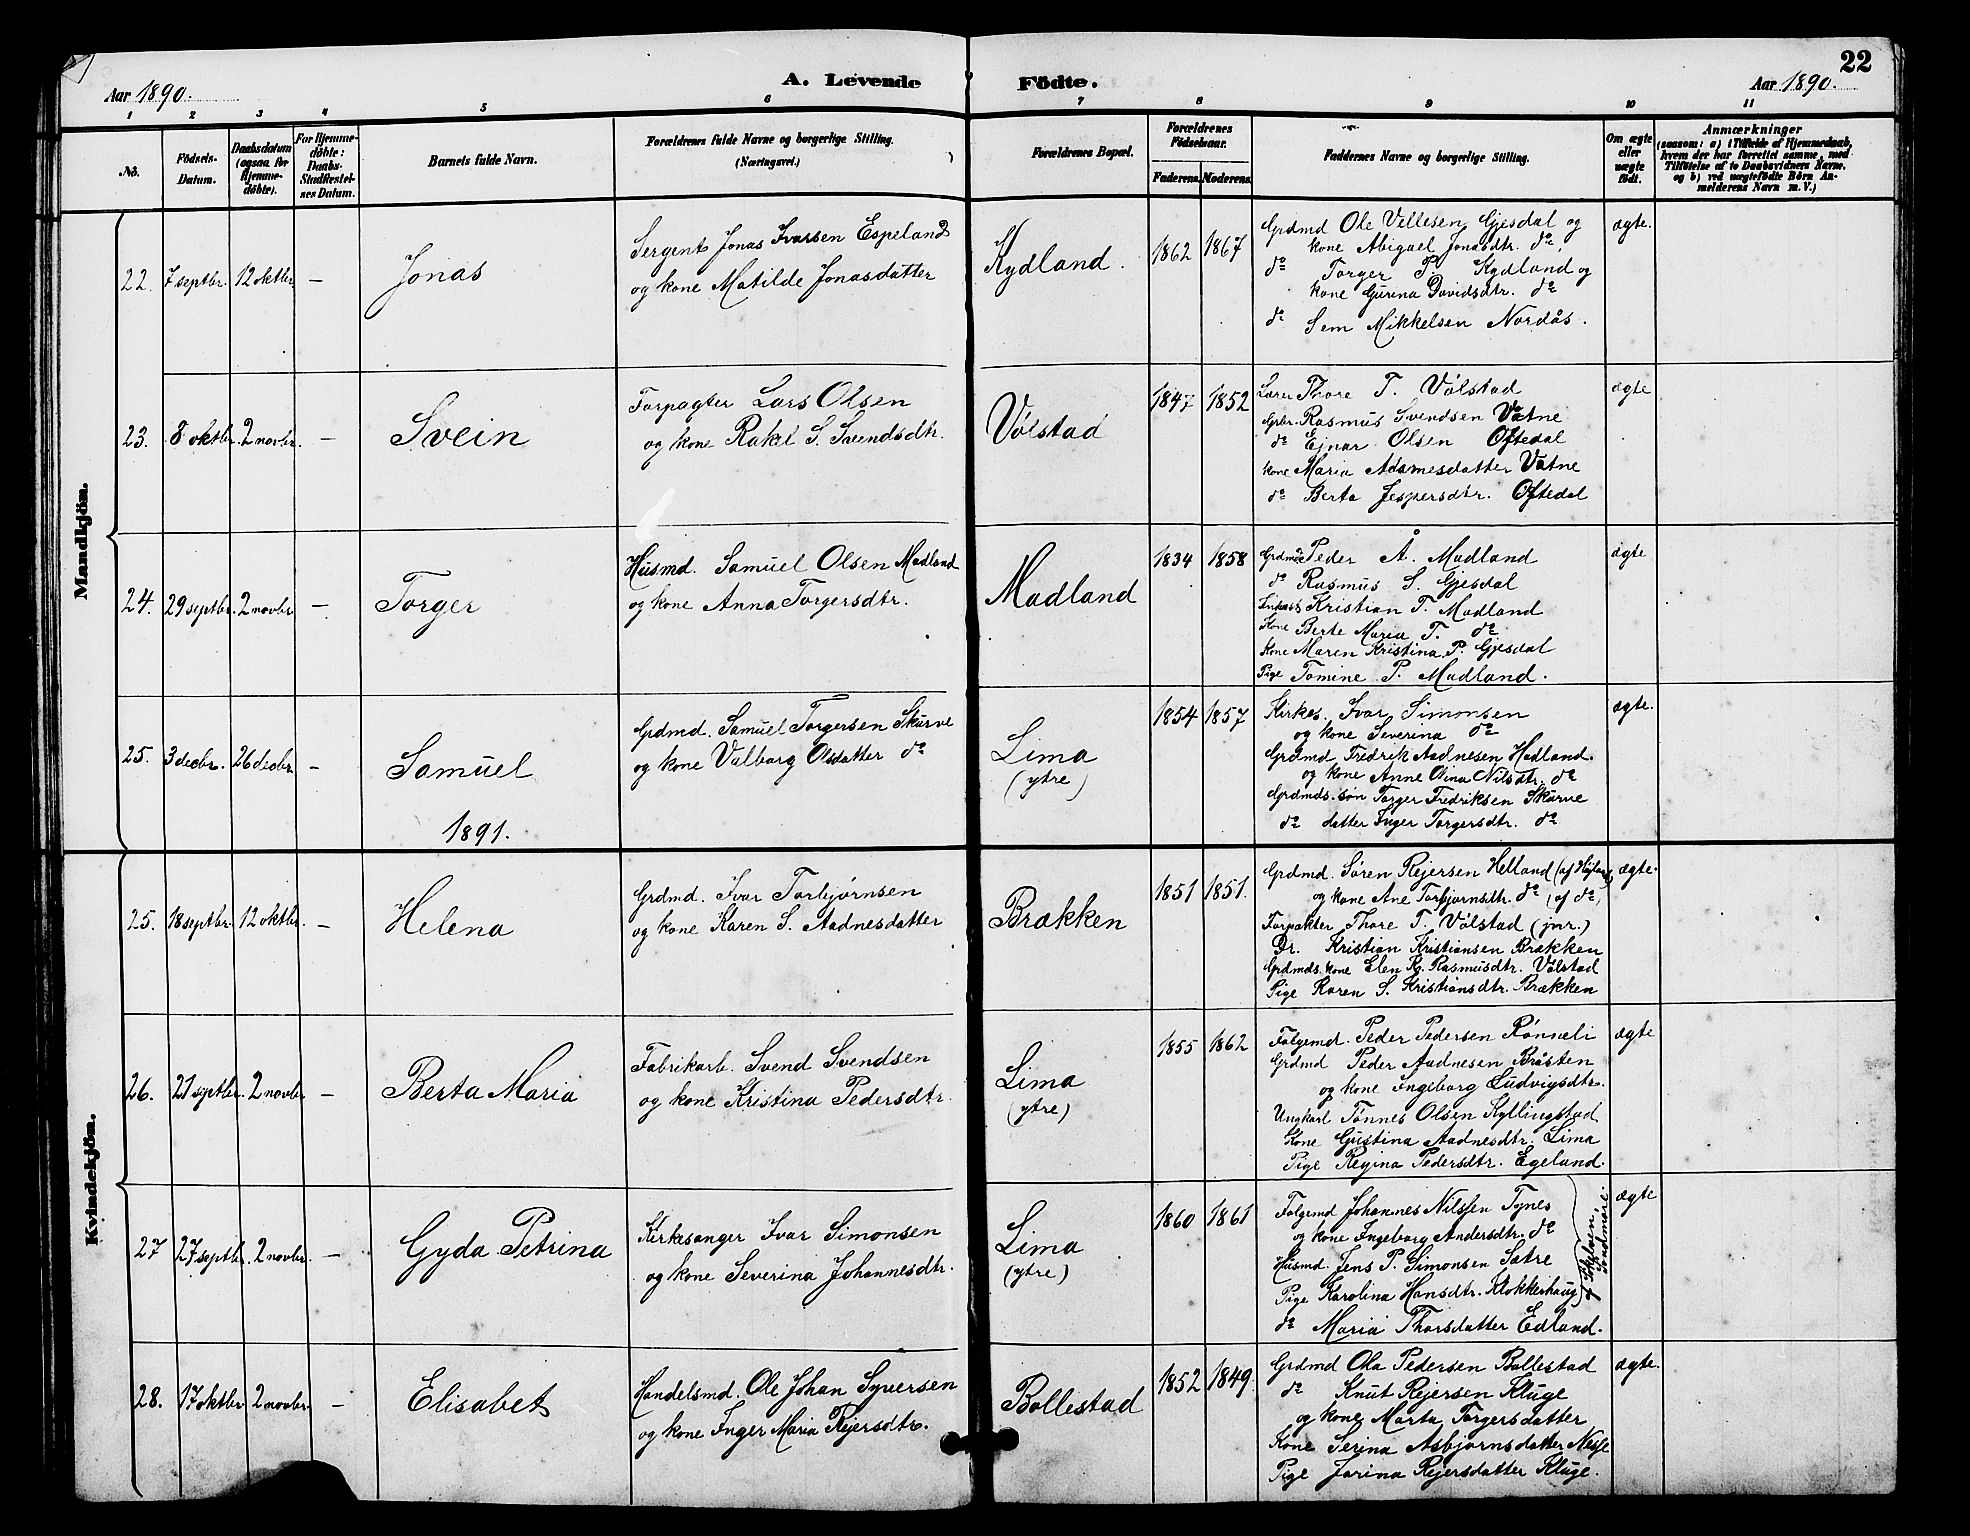 22
Aar 1890.
A. Levende Födte.
Aar 1890.
1 2 3 4 5 6 7 8 9 10 11
No.
Födsels-Datum.
Daabsdatum (ogsaa for Hjemme-döbte).
For Hjemme-döbte: Daabs-Stadfæstel-ses Datum.
Barnets fulde Navn.
Forældrenes fulde Navne og borgerlige Stilling. (Næringsvei.)
Forældrenes Bopæl.
Forældrenes Födselsaar.
Faderens. Moderens.
Faddernes Navne og borgerlige Stilling.
Om ægte eller uægte födt.
Anmærkninger
(saasom: a) i Tilfælde af Hjemmedaab,
hvem der har forrettet samme, med
Tilföielse af to Daabsvidners Navne.
og b) ved uægtefödte Börn An-
melderens Navn m.V.)
Mandkjön.
22. 7 septbr. 12 oktbr. — Jonas
Sergent Jonas Ivarsen Espeland
og kone Matilde Jonasdatter
Kydland. 1862 1867
Grdmd Ole Vellesen Gjesdal og
kone Abigael Jonasdtr. do
do Torger P. Kydland og
kone Gurina Davidsdtr. do
do Sem Mikkelsen Nordås.
ægte.
23. 8 oktbr. 2 novbr. — Svein
Forpagter Lars Olsen
og kone Rakel S. Svendsdtr.
Vølstad 1847 1852
Lærer Thore T. Vølstad
Gbr. Rasmus Svendsen Vatne
do Ejnar Olsen Oftedal
kone Maria Adamesdatter Vatne
do Berta Jespersdtr. Oftedal
ægte
24. 29 septbr. 2 novbr — Torger
Husmd. Samuel Olsen Madland
og kone Anna Torgersdtr.
Madland 1834 1858
Grdmd Peder Å. Madland
do Rasmus S. Gjesdal
Kristian T. Madland
Kone Berte Maria T. do
Kone Maren Kristina P. Gjesdal
Pige Tomine P. Madland.
ægte
25. 3 decbr. 26 decbr. — Samuel
Grdmd. Samuel Torgersen Skurve
og kone Valborg Olsdatter do
Lima (ytre) 1854 1857
Kirkes. Ivar Simonsen
og kone Severina do
Grdmd Fredrik Aadnesen Hadland.
og kone Anne Olina Nilsdtr. do
Grdmds. søn Torger Fredriksen Skurve
do datter Inger Torgersdtr. do
ægte.
1891.
Kvindekjön.
25. 18 septbr. 12 oktbr. — Helena
Grdmd. Ivar Torbjørnsen
og kone Karen S. Aadnesdatter
Brækken 1851 1851.
Grdmd. Søren Rejersen Helland (af Høiland)
og kone Ane Torbjørnsdtr. do (af do)
Forpakter Thore T. Vølstad (jnr.)
Dr. Kristian Kristiansen Brækken
Grdmds. kone Elen Kr. Rasmusdtr. Vølstad
Pige Karen S. Kristiansdtr. Brækken
ægte.
26. 21 septbr. 2 novbr. — Berta Maria
Fabrikarb. Svend Svendsen
og kone Kristina Pedersdtr.
Lima (ytre) 1855 1862
Følgemd. Peder Pedersen Rønneli
Grdmd Peder Aadnesen Bråsten
og kone Ingeborg Ludvigsdtr.
Ungkarl Tønnes Olsen Kyllingstad
Kone Gustina Aadnesdtr. Lima
Pige Regina Pedersdtr. Egeland.
ægte
27 27 septbr. 2 novbr. — Gyda Petrina
Kirkesanger Ivar Simonsen
og kone Severina Johannesdtr.
Lima (ytre) 1860 1861
Følgemd Johannes Nilssen Tynes
og kone Ingeborg Andersdtr. do
Husmd. Jens P. Simonsen Sætre
Pige Karolina Hansdtr. Klokkerhaug
af Sykelven, Søndmøre.
do Maria Thorsdatter Edland.
ægte
28. 17 oktbr 2 novbr. — Elisabet
Handelsmd. Ole Johan Syversen
og kone Inger Maria Rejersdtr.
Bollestad 1852 1849.
Grdmd Ola Pedersen Bollestad
do Knut Rejersen Kluge
og kone Marta Torgersdatter
Kone Serina Asbjørnsdatter Nesse
Pige Jorina Rejersdatter Kluge.
ægte.